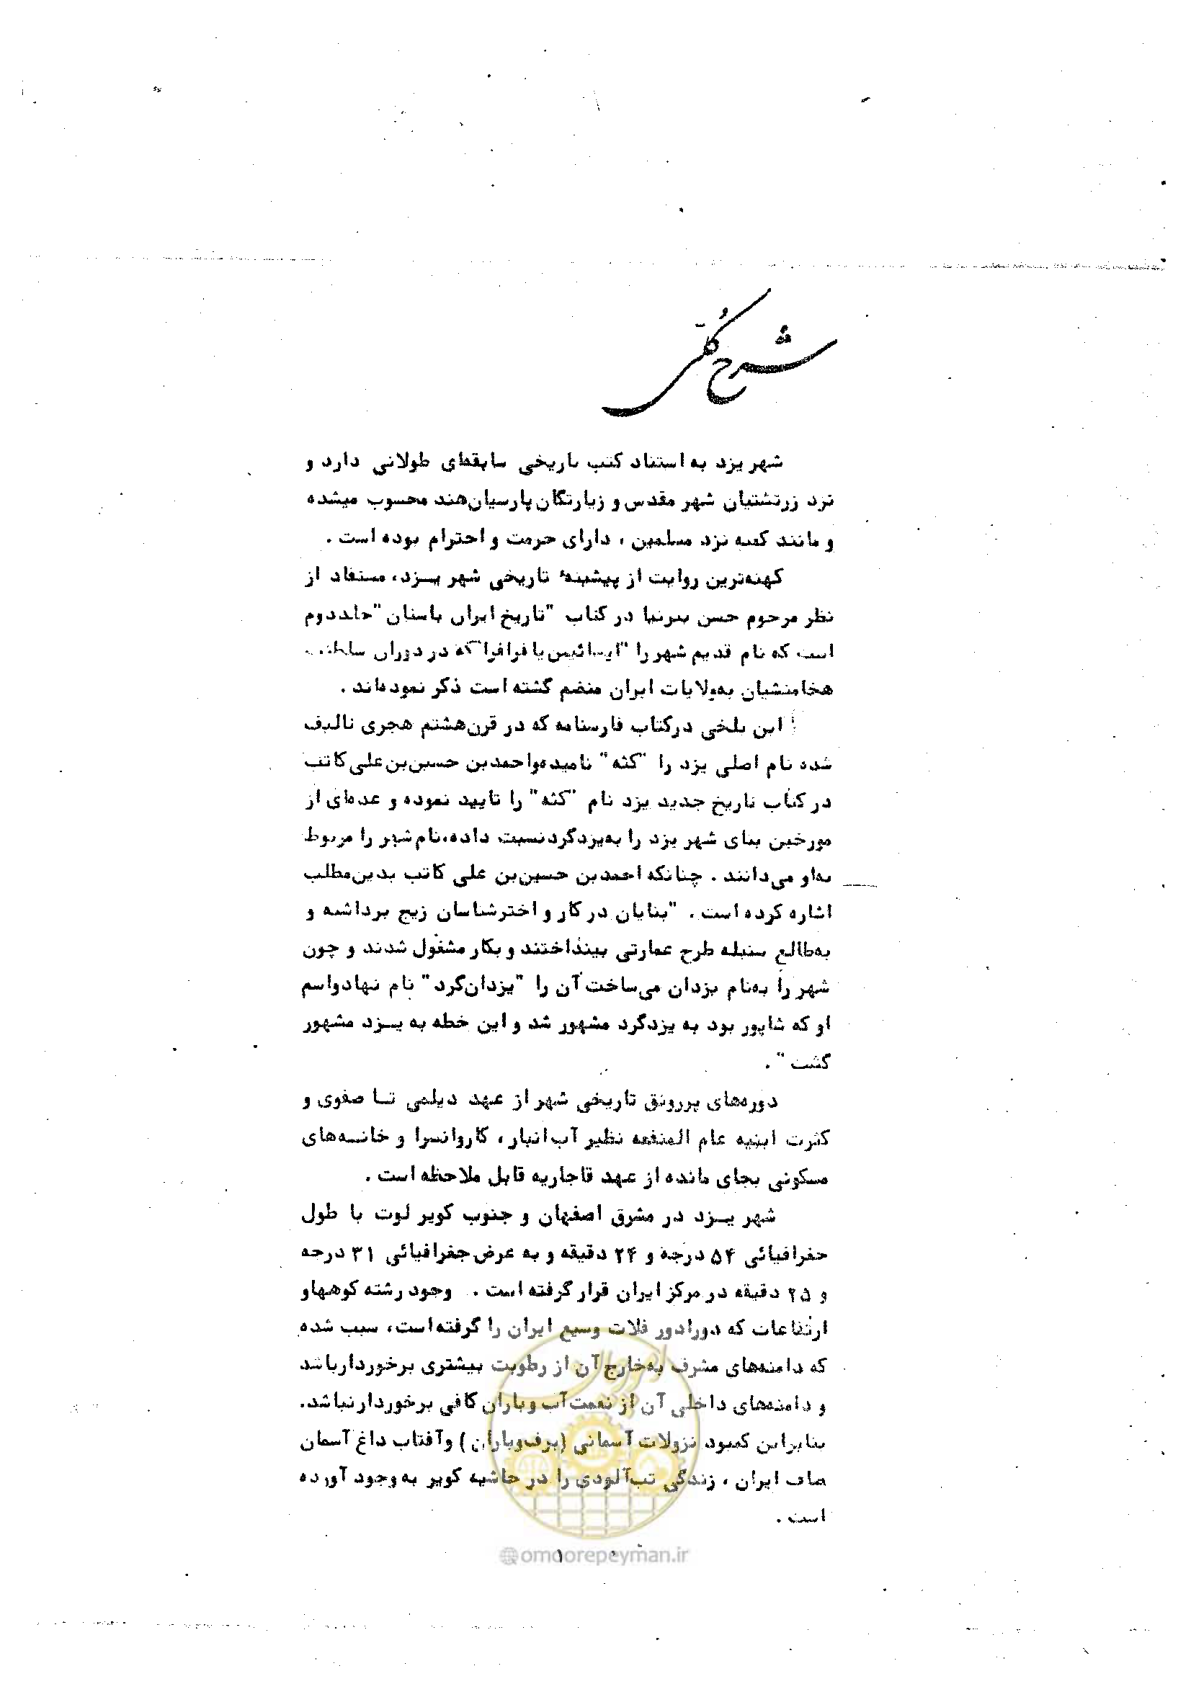 شرح کلّی
شهر یزد به استناد کتب تاریخی سابقه‌ای طولانی دارد و
نزد زرتشتیان شهر مقدس و زیارتگان پارسیان‌هند محسوب میشده
و مانند کعبه نزد مسلمین ، دارای حرمت و احترام بوده است .
کهنه‌ترین روایت از پیشینهٔ تاریخی شهر یـزد، مستفاد از
نظر مرحوم حسن پیرنیا در کتاب "تاریخ ایران باستان" جلددوم
است که نام قدیم شهر را "ایساتیس یا فرافر" که در دوران سلطنت
هخامنشیان به‌ولایات ایران منضم گشته است ذکر نموده‌اند .
ابن بلخی درکتاب فارسنامه که در قرن‌هشتم هجری تالیف
شده نام اصلی یزد را "کثه" نامیده‌واحمدبن حسین‌بن‌علی‌کاتب
در کتاب تاریخ جدید یزد نام "کثه" را تایید نموده و عده‌ای از
مورخین بنای شهر یزد را به‌یزدگردنسبت داده،نام‌شهر را مربوط
به‌او می‌دانند . چنانکه احمدبن حسین‌بن علی کاتب بدین‌مطلب
اشاره کرده است . "بنایان در کار و اخترشناسان زیج برداشته و
به‌طالع سنبله طرح عمارتی بینداختند و بکار مشغول شدند و چون
شهر را به‌نام یزدان می‌ساخت آن را "یزدان‌گرد" نام نهادواسم
او که شاپور بود به یزدگرد مشهور شد و این خطه به یـزد مشهور
گشت" .
دوره‌های پررونق تاریخی شهر از عهد دیلمی تـا صفوی و
کثرت ابنیه عام المنفعه نظیر آب‌انبار ، کاروانسرا و خانـه‌های
مسکونی بجای مانده از عهد قاجاریه قابل ملاحظه است .
شهر یـزد در مشرق اصفهان و جنوب کویر لوت با طول
جغرافیائی ۵۴ درجه و ۲۴ دقیقه و به عرض‌جغرافیائی ۳۱ درجه
و ۲۵ دقیقه در مرکز ایران قرار گرفته است . وجود رشته کوهها‌و
ارتفاعات که دورادور فلات وسیع ایران را گرفته‌است، سبب شده
که دامنه‌های مشرف به‌خارج آن از رطوبت بیشتری برخوردارباشد
و دامنه‌های داخلی آن از نعمت‌آب وباران کافی برخوردارنباشد.
بنابراین کمبود نزولات آسمانی (برف‌وباران) وآفتاب داغ آسمان
صاف ایران ، زندگی تب‌آلودی را در حاشیه کویر به‌وجود آورده
است .
۱
@omoorepeyman.ir